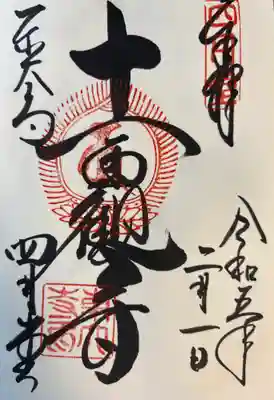 奉拝
令和五年
二月一日
十一面観音
東大寺
四月堂